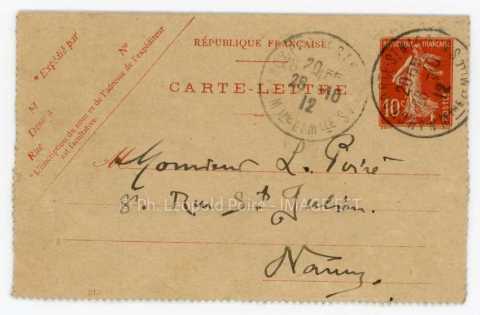 RÉPUBLIQUE FRANÇAISE
CARTE-LETTRE
* Expédié par
M
Demeurant à
Rue
N°
* L'inscription du nom et de l'adresse de l'expéditeur
est facultative.
20
28 - 10
12
REPUBLIQUE FRANÇAISE
10c
POSTES
20
10
12
M Monsieur L. Poiré
8, Rue St Julien.
Nancy
Ph. Léopold Poiré - IMAGE'EST